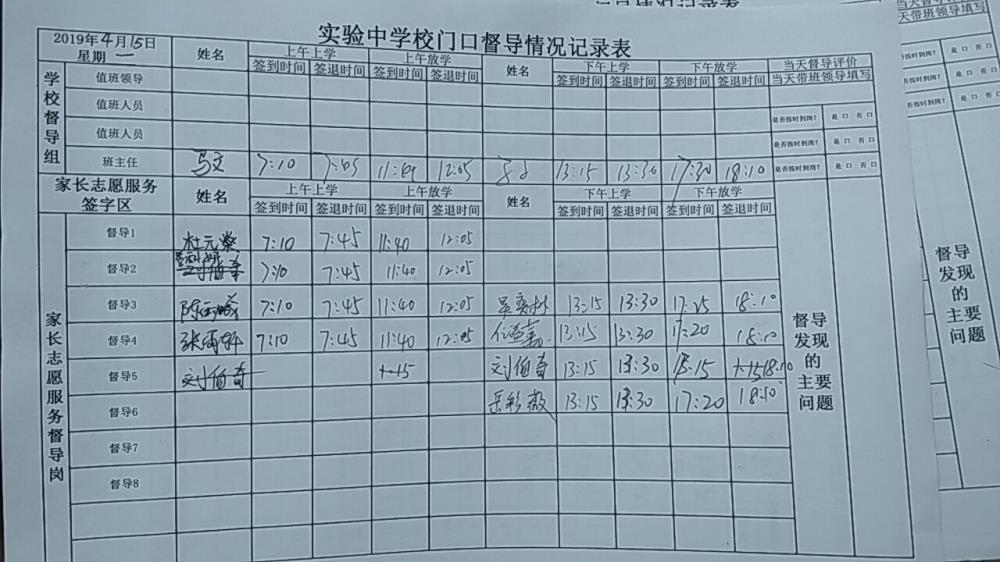 实验中学校门口督导情况记录表
2019年4月15日
星期一
姓名 上午上学 上午放学 姓名 下午上学 下午放学 当天督导评价
签到时间 签退时间 签到时间 签退时间 签到时间 签退时间 签到时间 签退时间 当天带班领导填写
学校督导组
值班领导
值班人员 是否按时到岗? 是 口 否 口
值班人员 是否按时到岗? 是 口 否 口
班主任 7:10 7:45 12:05 13:15 13:30 17:30 18:10 是否按时到岗? 是 口 否 口
家长志愿服务签字区 姓名 上午上学 上午放学 姓名 下午上学 下午放学
签到时间 签退时间 签到时间 签退时间 签到时间 签退时间 签到时间 签退时间
家长志愿服务督导岗
督导1 杜元燊 7:10 7:45 11:40 12:05
督导2 7:10 7:45 11:40 12:05
督导3 7:10 7:45 11:40 12:05 13:15 13:30 18:10
督导4 张雨轩 7:10 7:45 11:40 12:05 13:15 13:30 17:20 18:10
督导5 刘倍奇 刘倍奇 13:15 13:30 18:10
督导6 岳彩薇 13:15 13:30 17:20
督导7
督导8
督导发现的主要问题
天带班领导填写
是否按时到岗? 是 口 否 口
是否按时到岗? 是 口 否 口
是否按时到岗? 是 口 否 口
督导发现的主要问题